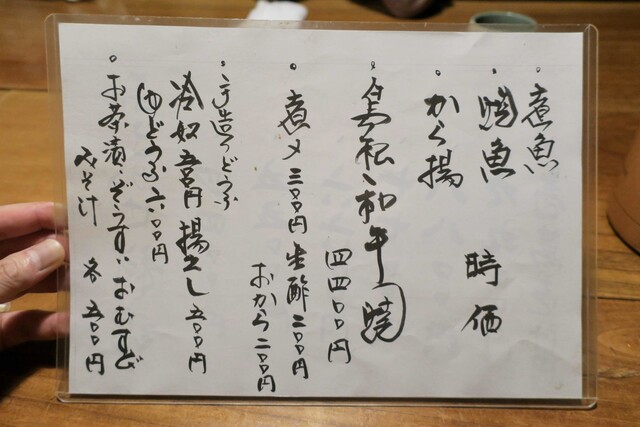 煮魚
焼魚
から揚
時価
和牛焼
四四〇〇円
煮〆 三〇〇円 生酢 二〇〇円
おから 二〇〇円
手造りどうふ
冷奴 五〇〇円 揚出し 五〇〇円
ゆどうふ 六〇〇円
お茶漬、ぞうすい、おむすび
みそ汁 各 五〇〇円